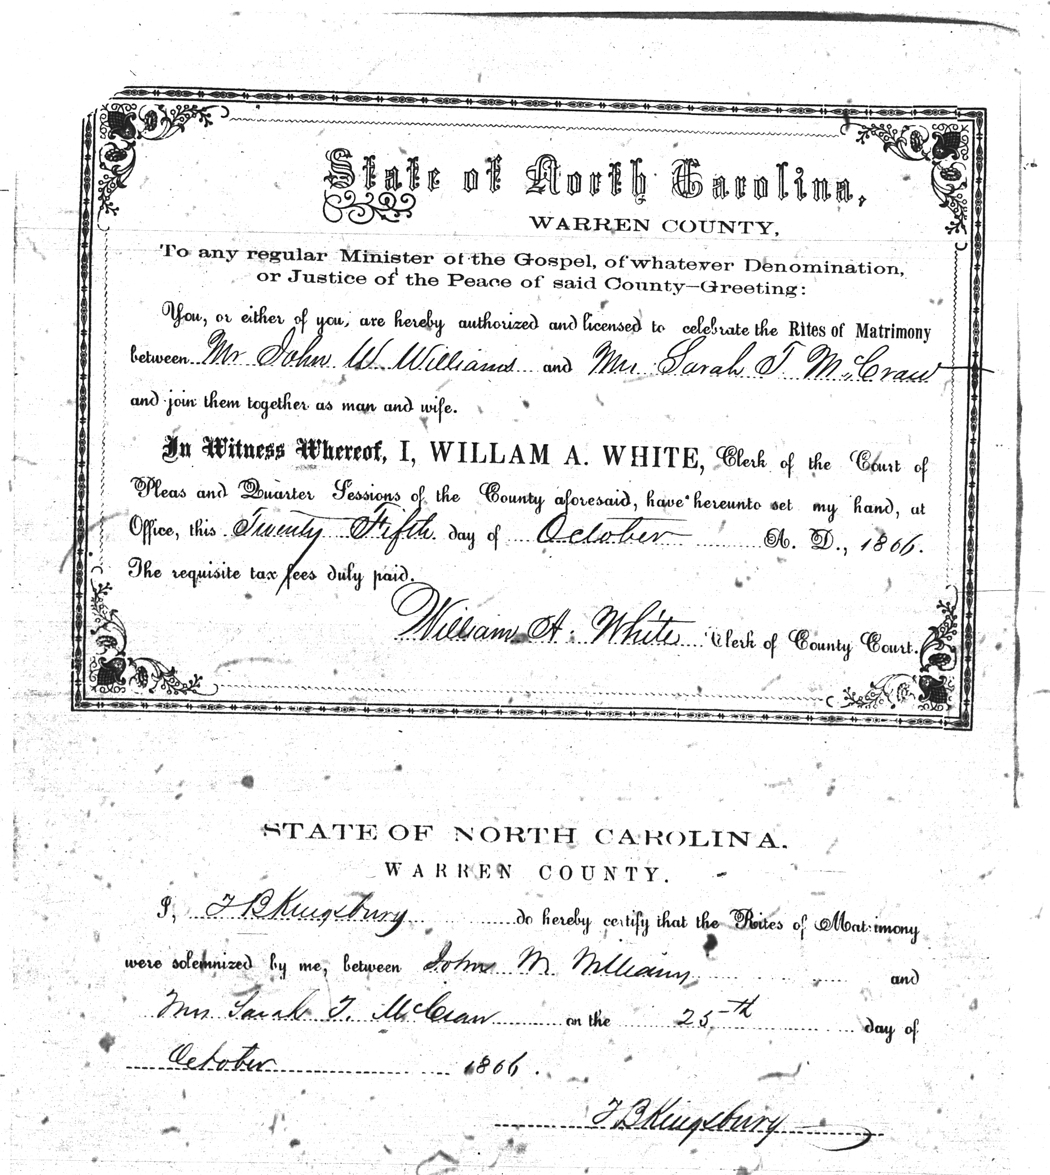 State of North Carolina,
WARREN COUNTY,
To any regular Minister of the Gospel, of whatever Denomination,
or Justice of the Peace of said County—Greeting:
You, or either of you, are hereby authorized and licensed to celebrate the Rites of Matrimony
between Mr John W Williams and Mrs Sarah T McCraw
and join them together as man and wife.
In Witness Whereof, I, WILLAM A. WHITE, Clerk of the Court of
Pleas and Quarter Sessions of the County aforesaid, have hereunto set my hand, at
Office, this Twenty Fifth day of October A. D., 1866.
The requisite tax fees duly paid.
William A. White Clerk of County Court.
STATE OF NORTH CAROLINA.
WARREN COUNTY.
I, T B Kingsbury do hereby certify that the Rites of Matrimony
were solemnized by me, between John W. Williams and
Mrs Sarah T. McCraw on the 25th day of
October 1866.
T B Kingsbury